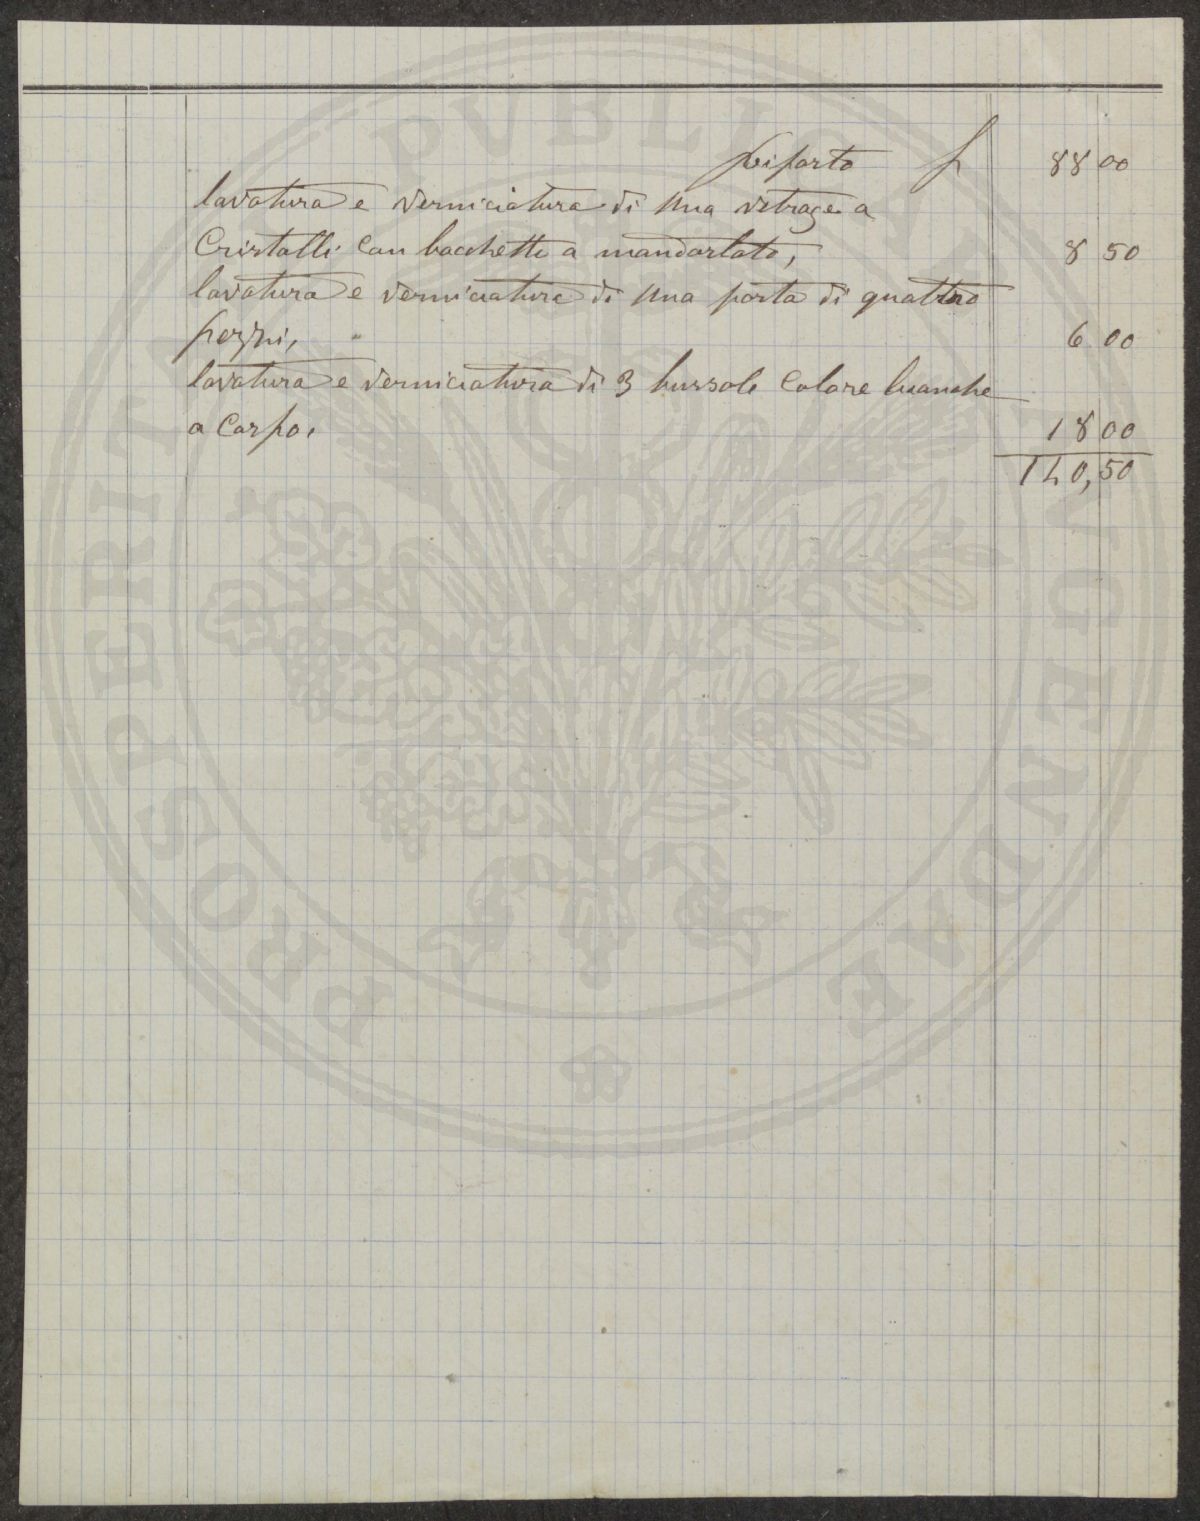 Riporto £ 88 00
lavatura e verniciatura di una vetrage a
Cristalli con bacchette a mandorlato, 8 50
lavatura e verniciatura di una porta di quattro
pezzi, 6 00
lavatura e verniciatura di 3 bussole Colore bianche
a Corpo. 18 00
140,50
PROSPERITATI PUBLICAE AVGENDAE